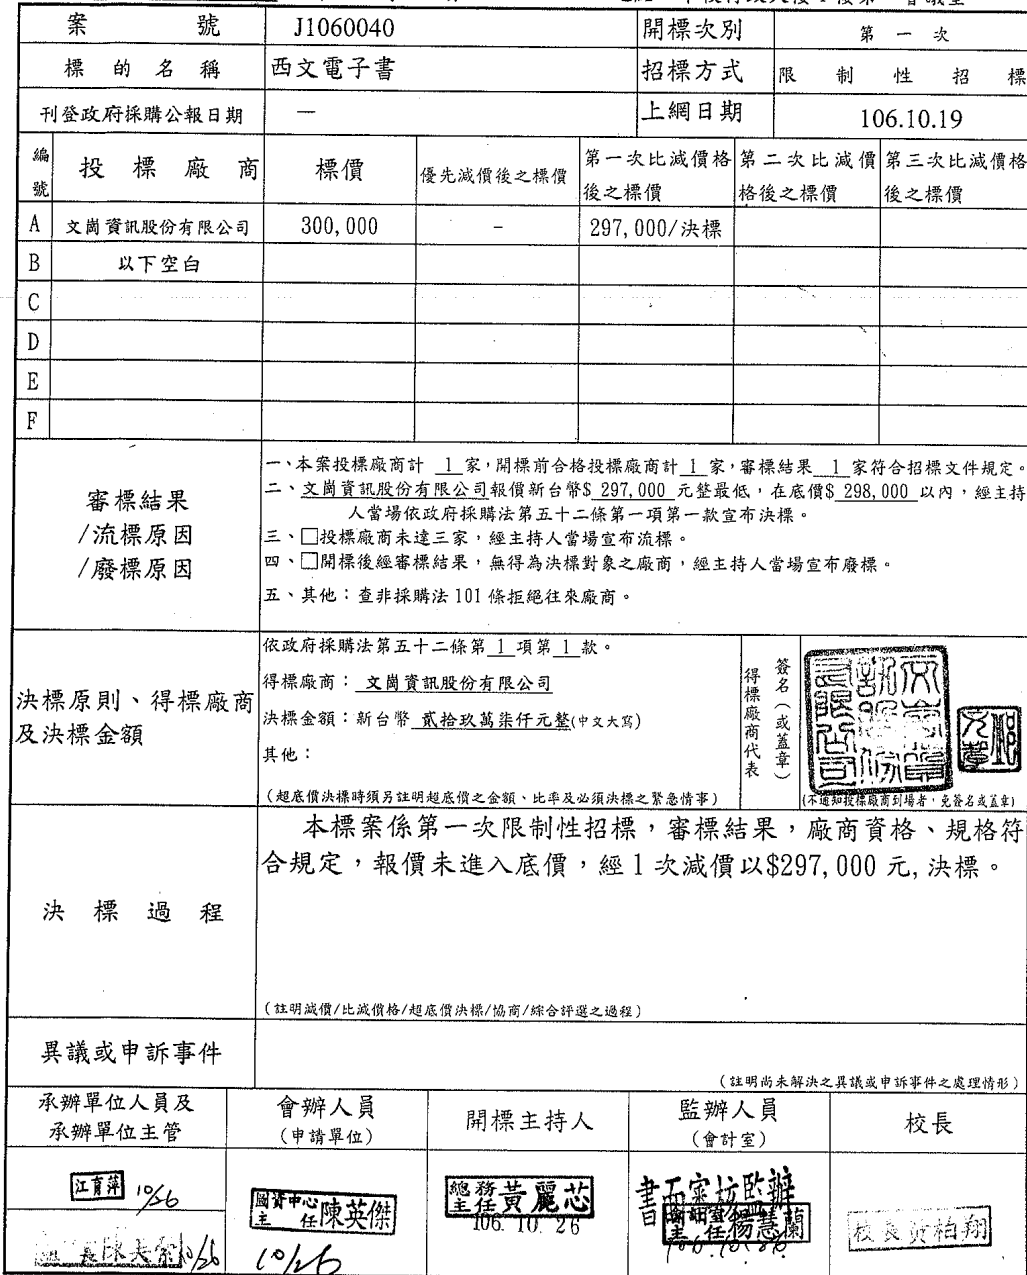 案號 J1060040 開標次別 第一次
標的名稱 西文電子書 招標方式 限制性招標
刊登政府採購公報日期 — 上網日期 106.10.19
編號 投標廠商 標價 優先減價後之標價 第一次比減價格後之標價 第二次比減價格後之標價 第三次比減價格後之標價
A 文崗資訊股份有限公司 300,000 - 297,000/決標
B 以下空白
C
D
E
F
審標結果
/流標原因
/廢標原因
一、本案投標廠商計 1 家，開標前合格投標廠商計 1 家，審標結果 1 家符合招標文件規定。
二、文崗資訊股份有限公司報價新台幣$ 297,000 元整最低，在底價$ 298,000 以內，經主持
人當場依政府採購法第五十二條第一項第一款宣布決標。
三、□投標廠商未達三家，經主持人當場宣布流標。
四、□開標後經審標結果，無得為決標對象之廠商，經主持人當場宣布廢標。
五、其他：查非採購法 101 條拒絕往來廠商。
決標原則、得標廠商
及決標金額
依政府採購法第五十二條第 1 項第 1 款。
得標廠商： 文崗資訊股份有限公司
決標金額：新台幣 貳拾玖萬柒仟元整(中文大寫)
其他：
(超底價決標時須另註明超底價之金額、比率及必須決標之緊急情事)
得標廠商代表
簽名（或蓋章）
(不通知投標廠商到場者，免簽名或蓋章)
決標過程
本標案係第一次限制性招標，審標結果，廠商資格、規格符
合規定，報價未進入底價，經 1 次減價以$297,000 元,決標。
(註明減價/比減價格/超底價決標/協商/綜合評選之過程)
異議或申訴事件
(註明尚未解決之異議或申訴事件之處理情形)
承辦單位人員及
承辦單位主管
會辦人員
(申請單位)
開標主持人
監辦人員
(會計室)
校長
江育萍 10/26
10/26
圖資中心主任 陳英傑
10/26
總務主任 黃麗芯
106.10.26
書面審核監辦
主任 楊慧蘭
106.10.26
校長 黃柏翔